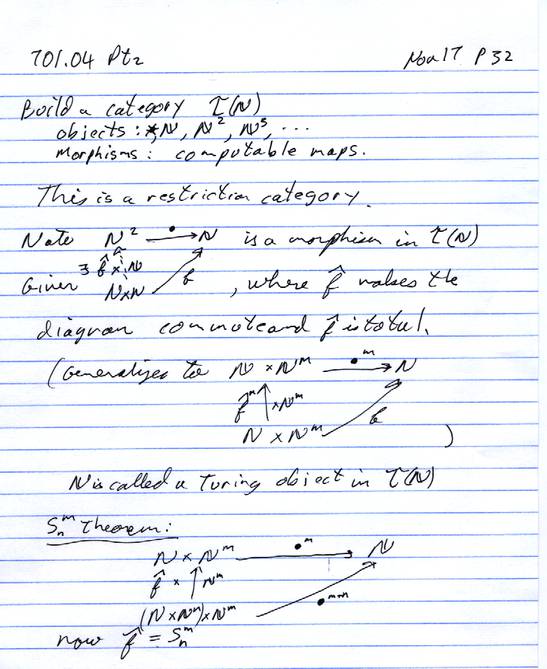 701.04 Pt2 Nov 17 P 32
Build a category τ(N)
objects : *, N, N², N³, ...
Morphisms : computable maps.
This is a restriction category.
Note N² •→ N is a morphism in τ(N)
∃ f̂ × N
Given N×N f , where f̂ makes the
diagram commute and f̂ is total.
(Generalizes to N × Nᵐ •ᵐ→ N
f̂ᵐ ↑ ×Nᵐ
N × Nᵐ f )
N is called a Turing object in τ(N)
Sₙᵐ Theorem:
N × Nᵐ •ᵐ→ N
f̂ × ↑ Nᵐ
(N × Nⁿ) × Nᵐ •ᵐ⁺ⁿ
now f̂ = Sₙᵐ